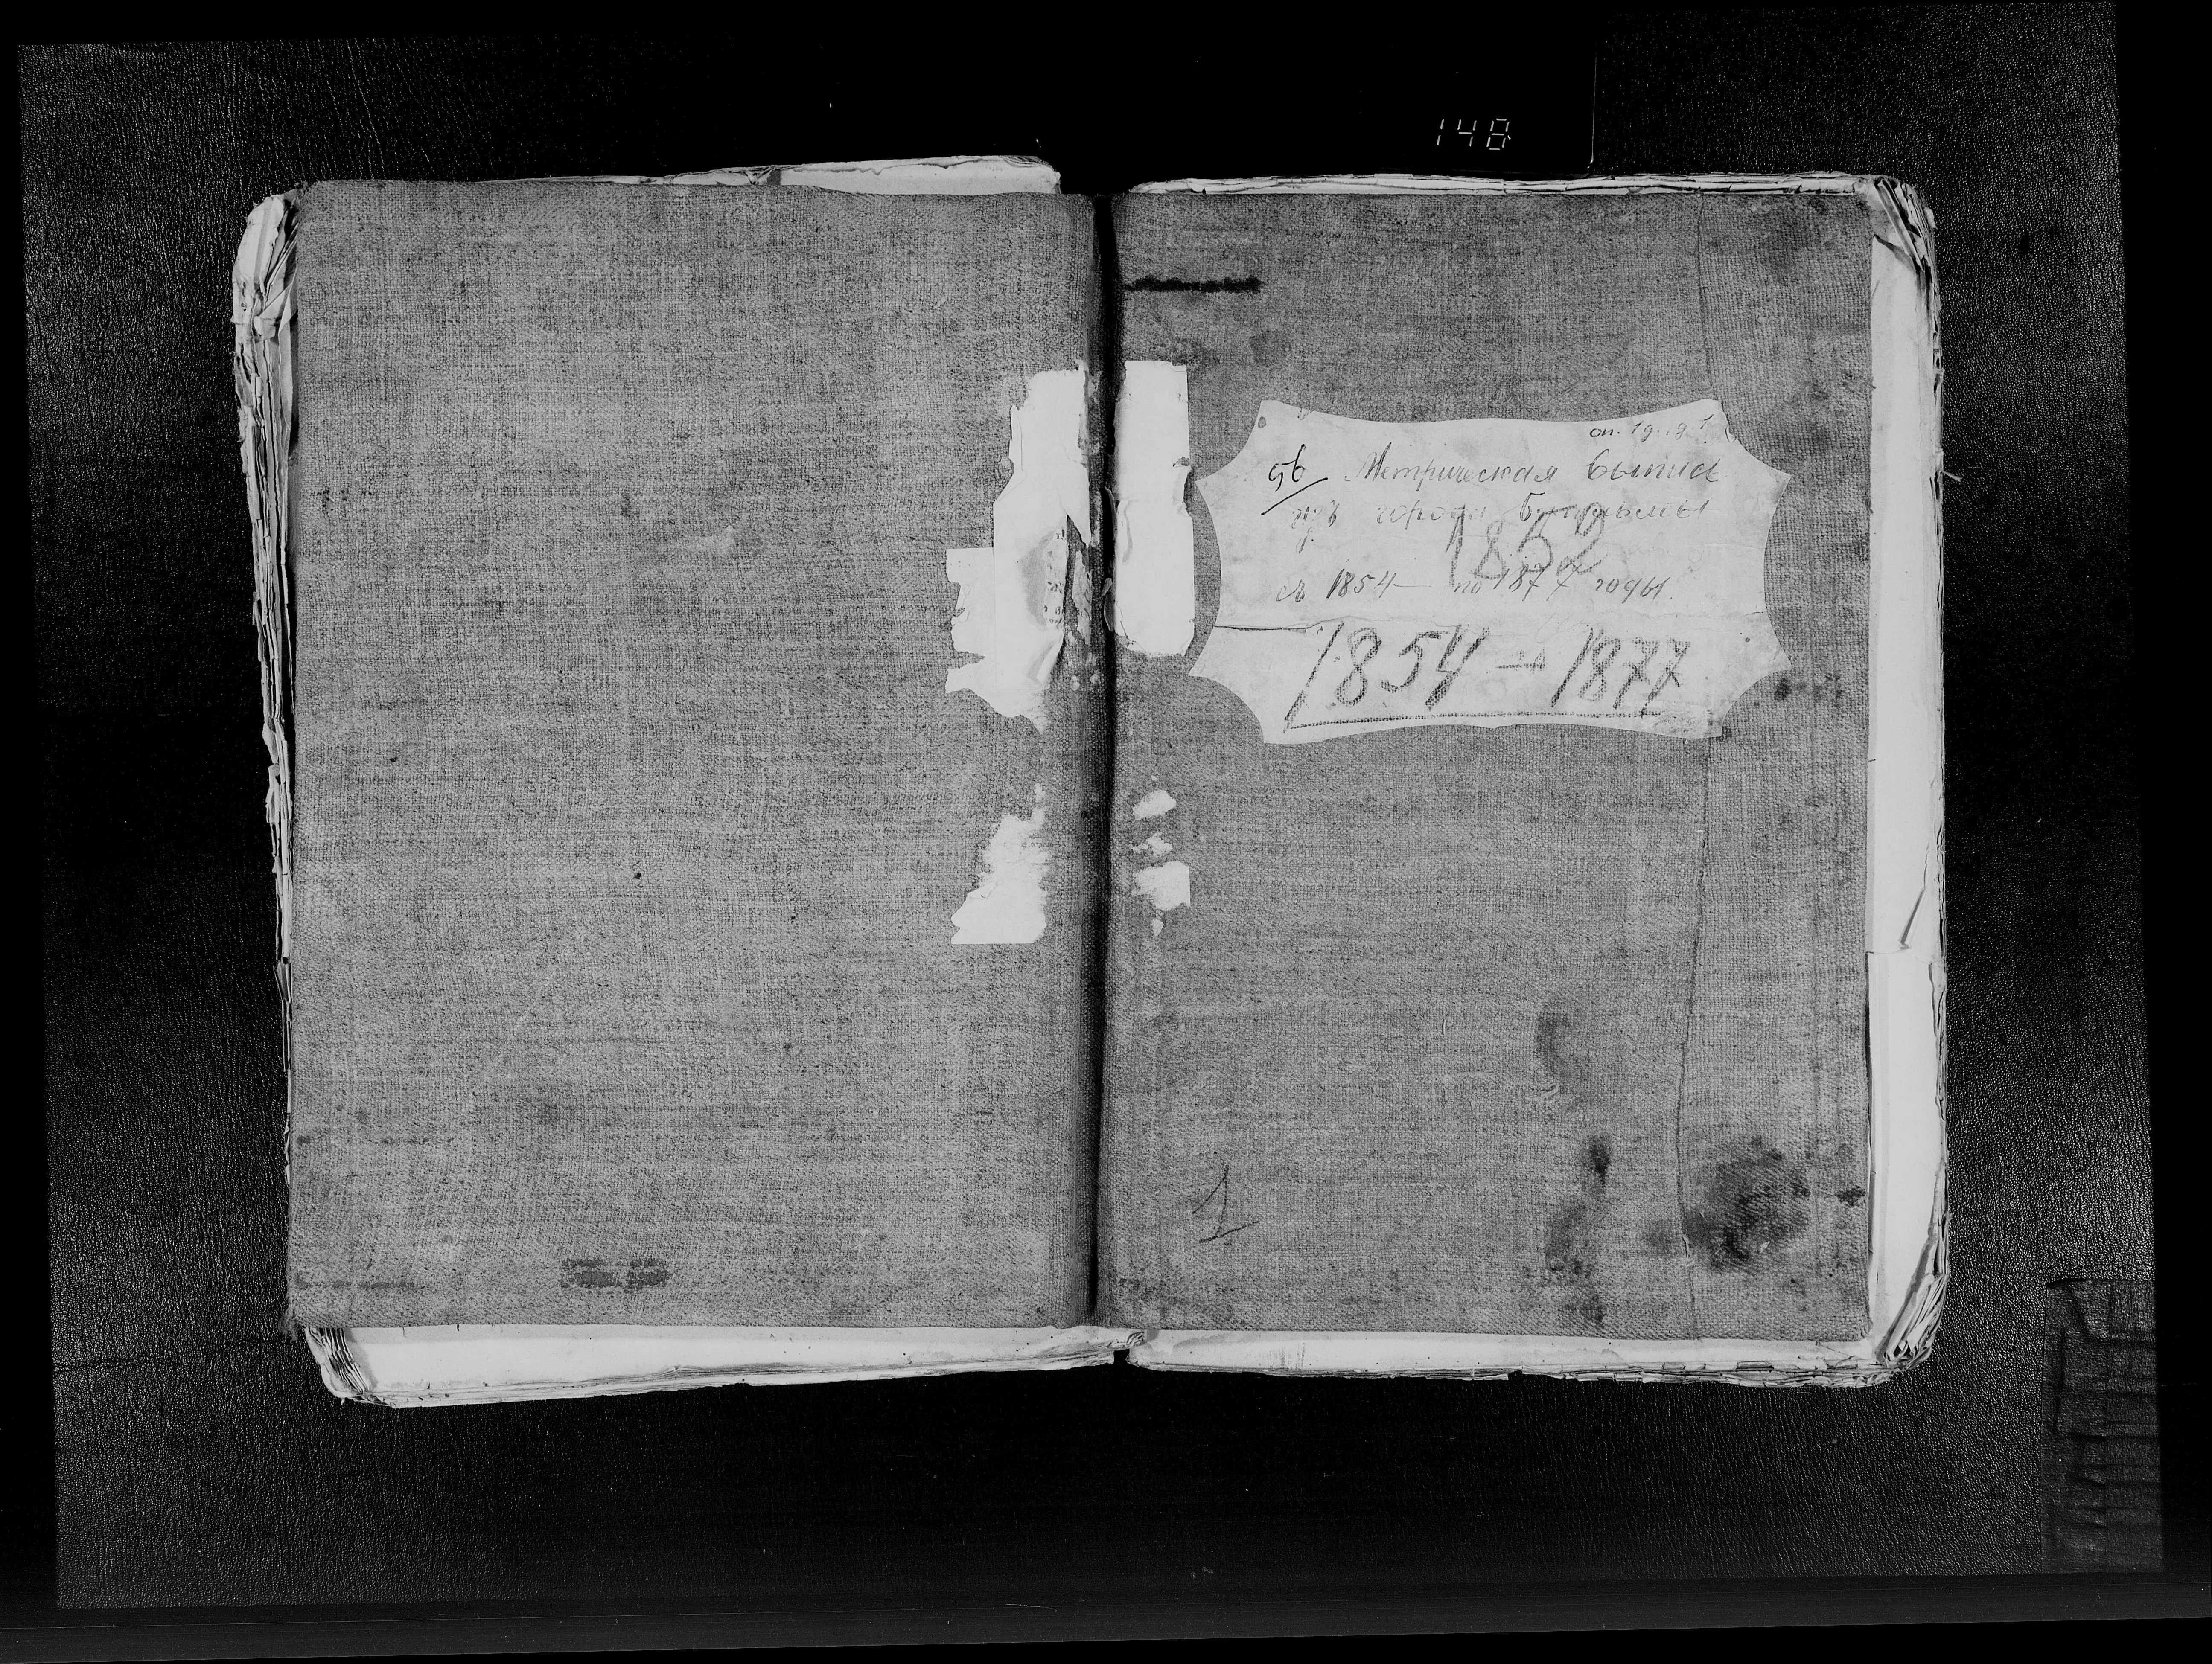 148
оп. 19. д. 1
96 Метрическая выпись
города Бугульмы
1852
съ 1854 — по 1877 годы.
1854 — 1877
1